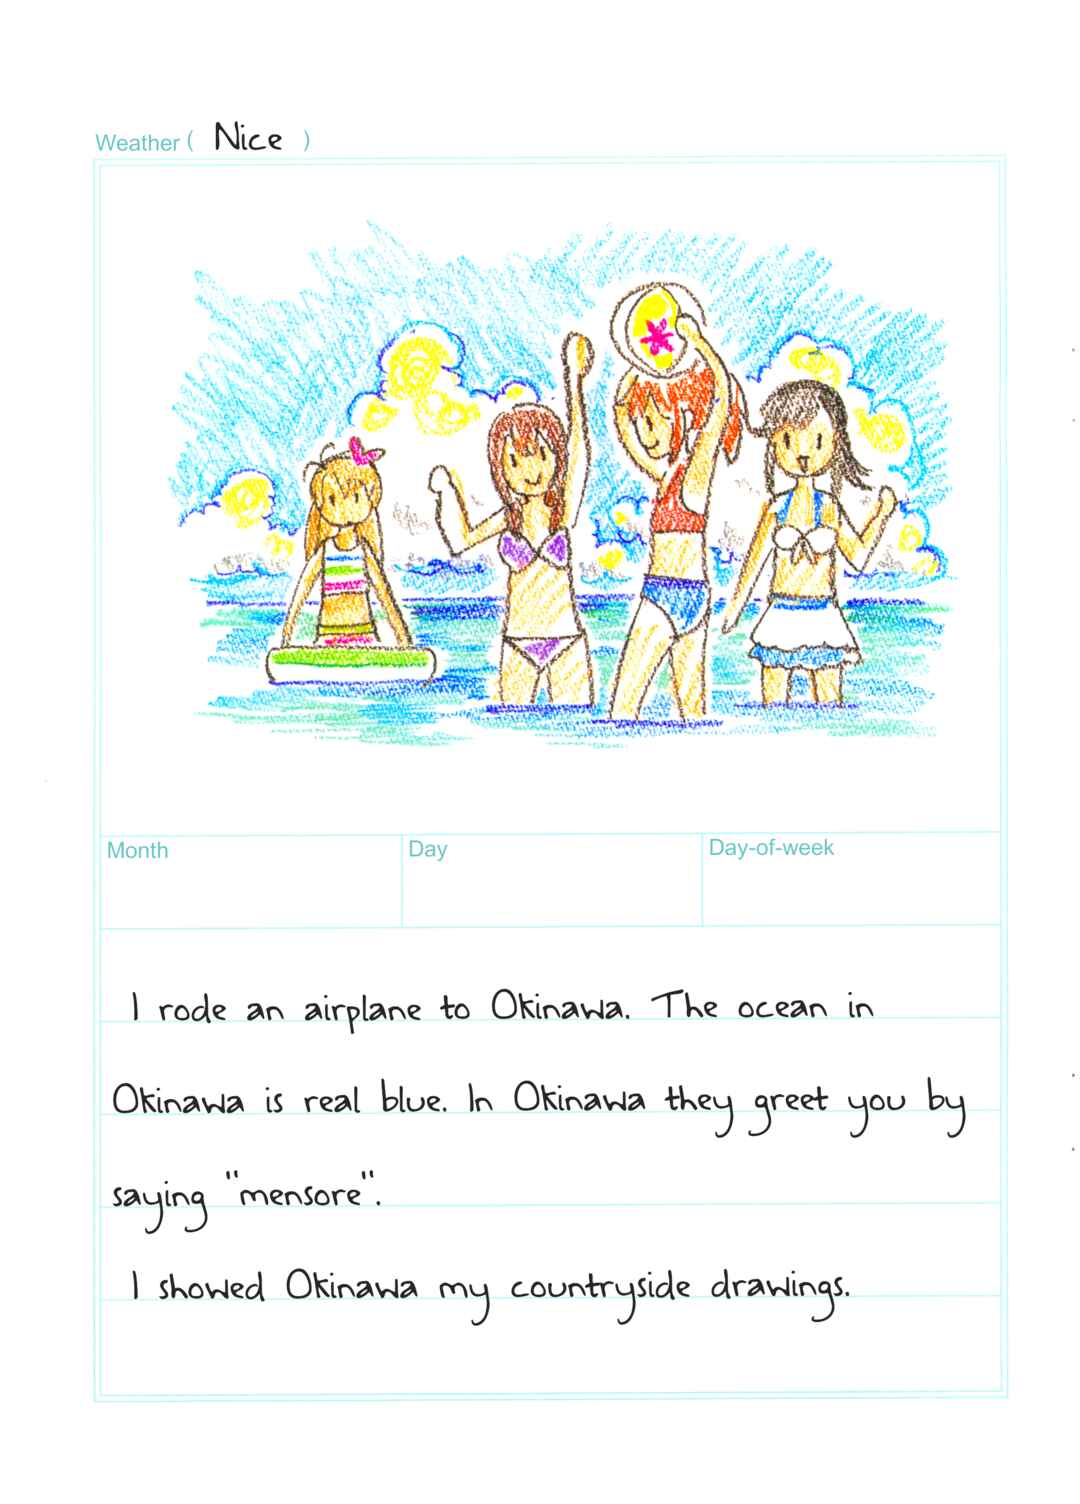 Weather ( Nice )
Month
Day
Day-of-week
I rode an airplane to Okinawa. The ocean in
Okinawa is real blue. In Okinawa they greet you by
saying "mensore".
I showed Okinawa my countryside drawings.